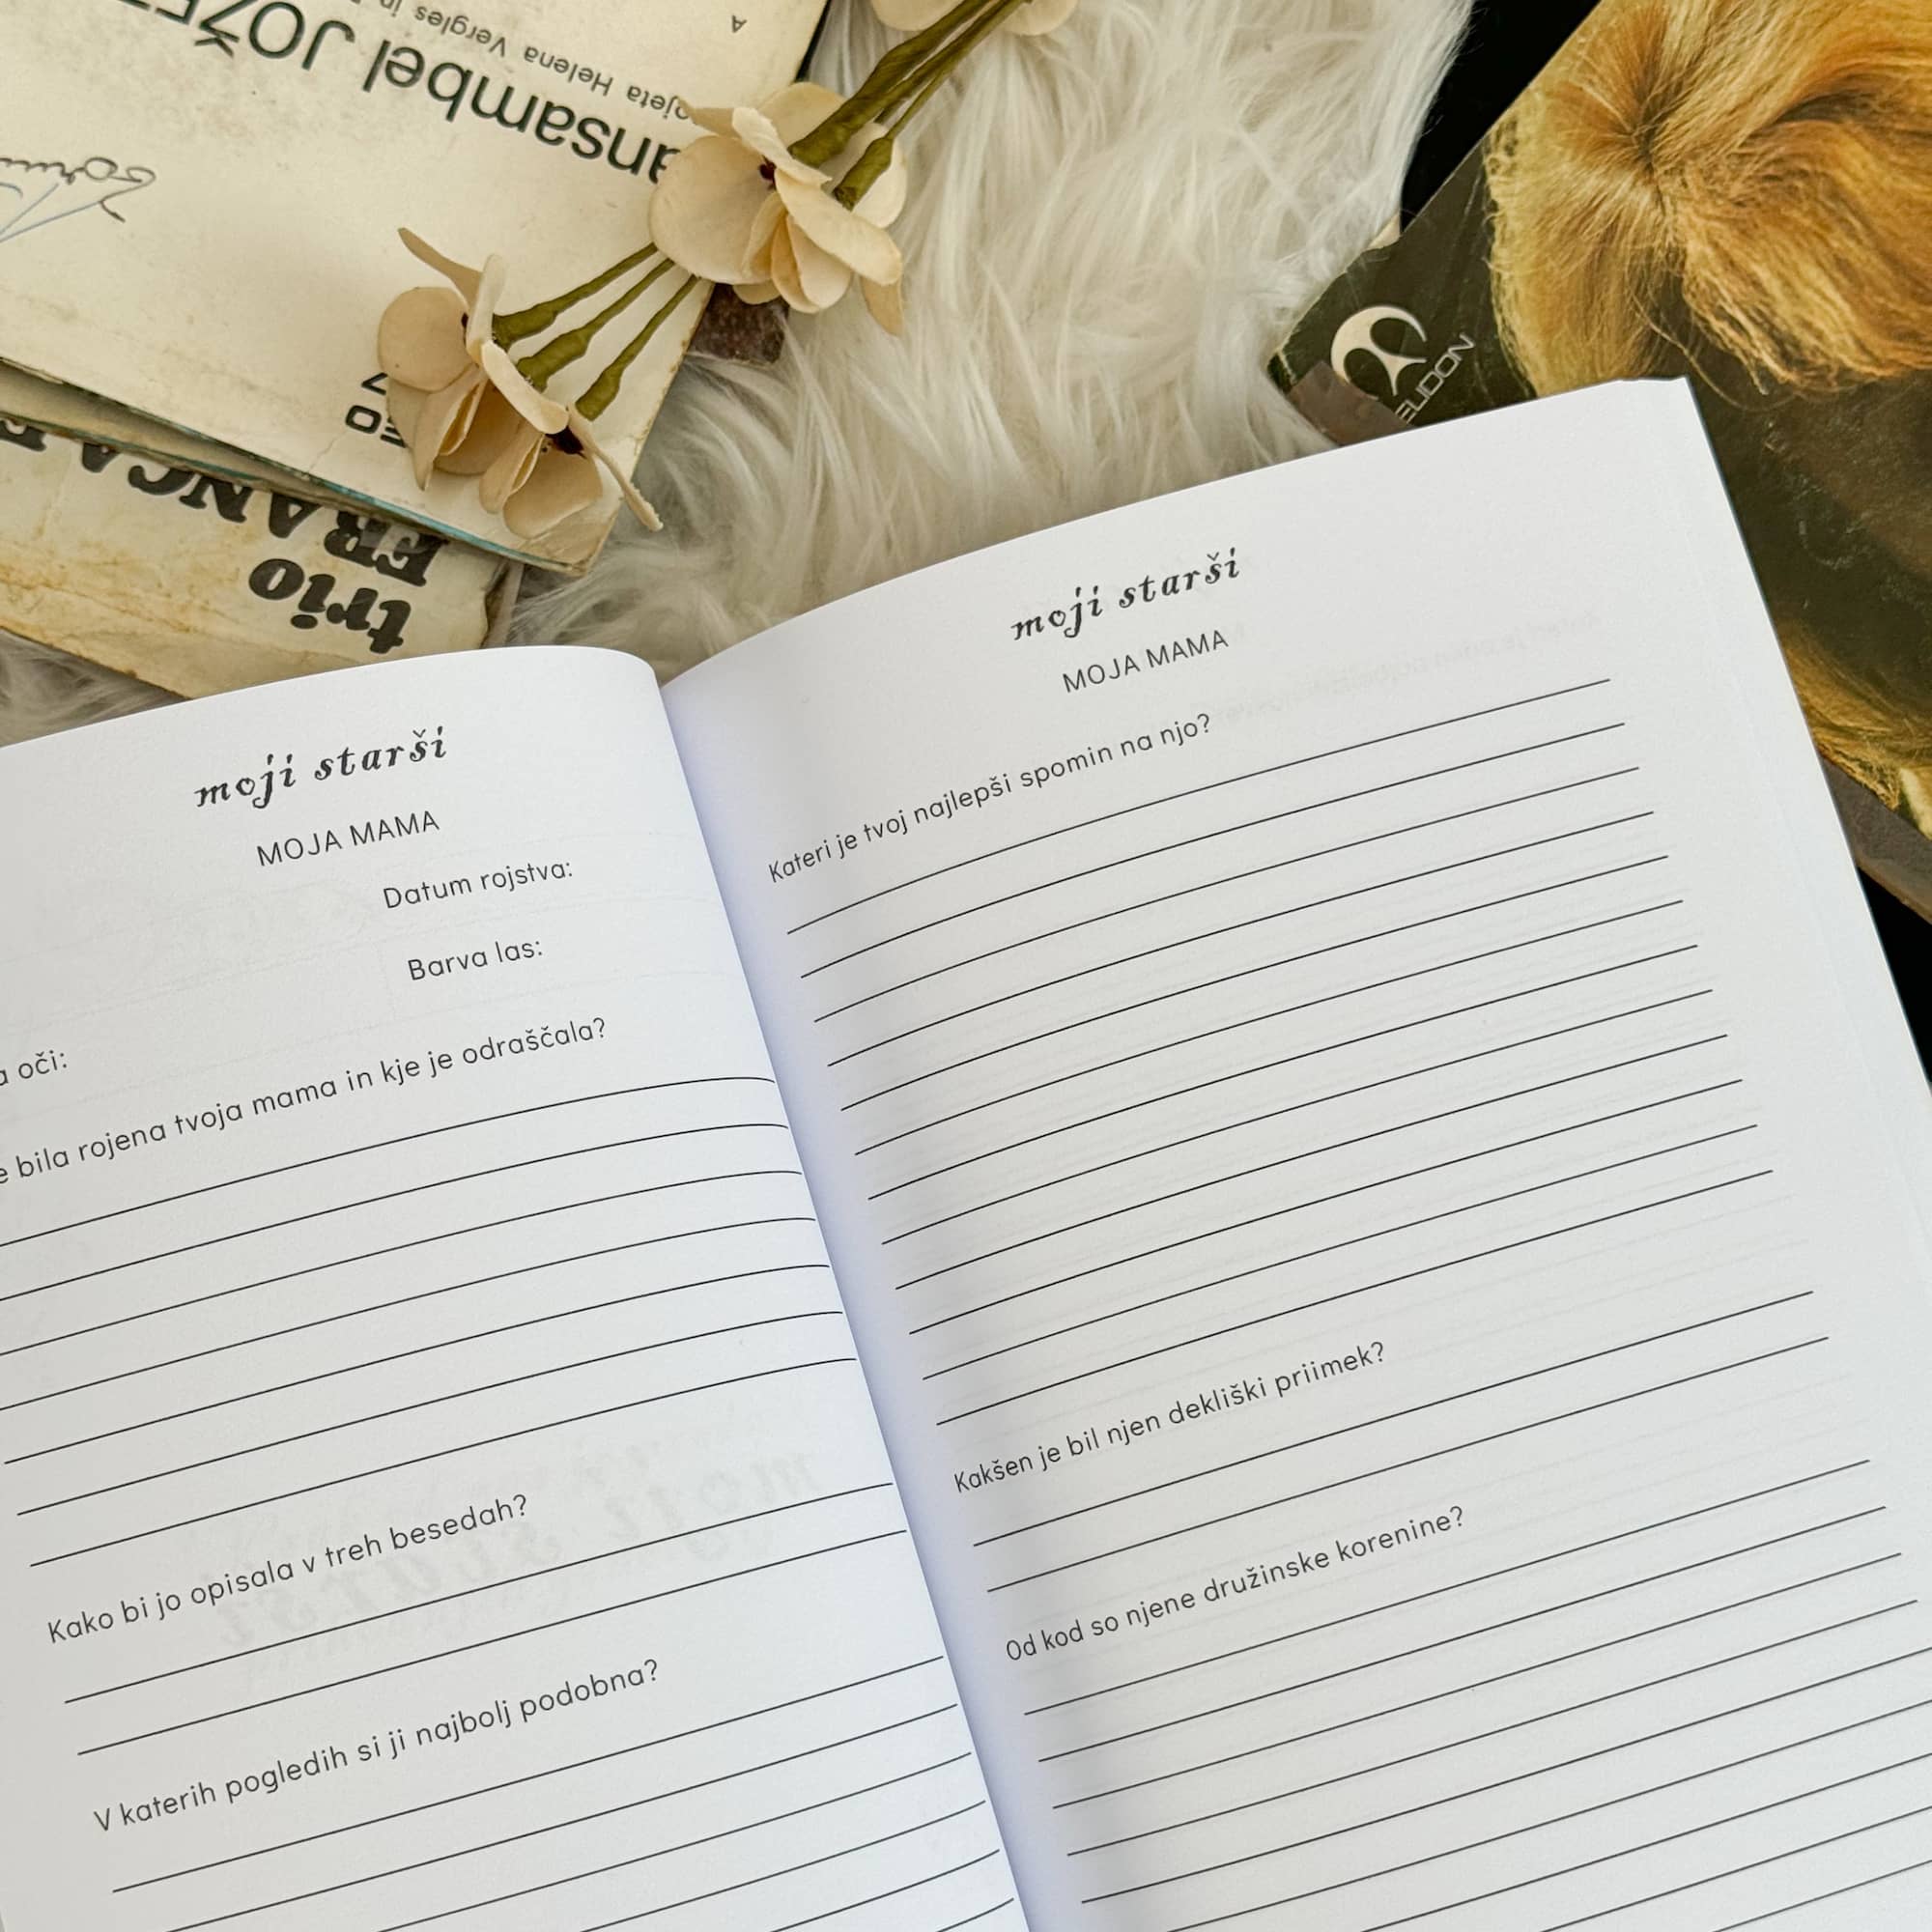 A
pojeta Helena Vergles in
ansambel JOŽE
trio
FRANCA
moji starši
MOJA MAMA
Datum rojstva:
Barva las:
oči:
bila rojena tvoja mama in kje je odraščala?
Kako bi jo opisala v treh besedah?
V katerih pogledih si ji najbolj podobna?
moji starši
MOJA MAMA
Kateri je tvoj najlepši spomin na njo?
Kakšen je bil njen dekliški priimek?
Od kod so njene družinske korenine?